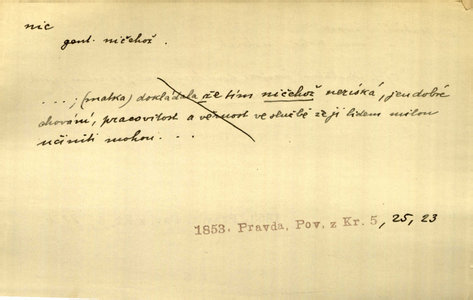 nic
gent. ničehož.
. . . ; (matka) dokládala že tím ničehož nezíská, jen dobré
chování, pracovitost a věrnost ve službě že ji lidem milou
učiniti mohou. . .
1853. Pravda, Pov. z Kr. 5, 25, 23